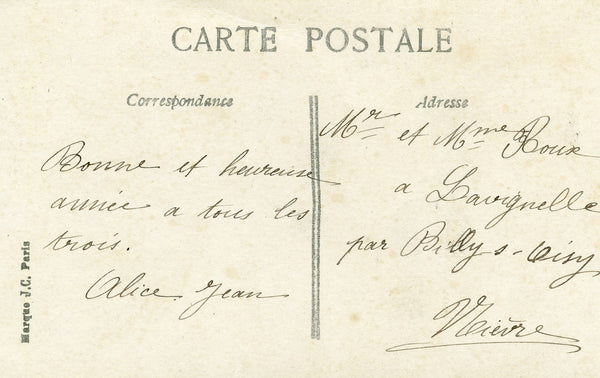 CARTE POSTALE
Correspondance
Adresse
Bonne et heureuse
année a tous les
trois.
Alice. Jean
Mr et Mme Roux
a Lavignelle
par Billy s-Oisy
Nièvre
Marque J.C. Paris